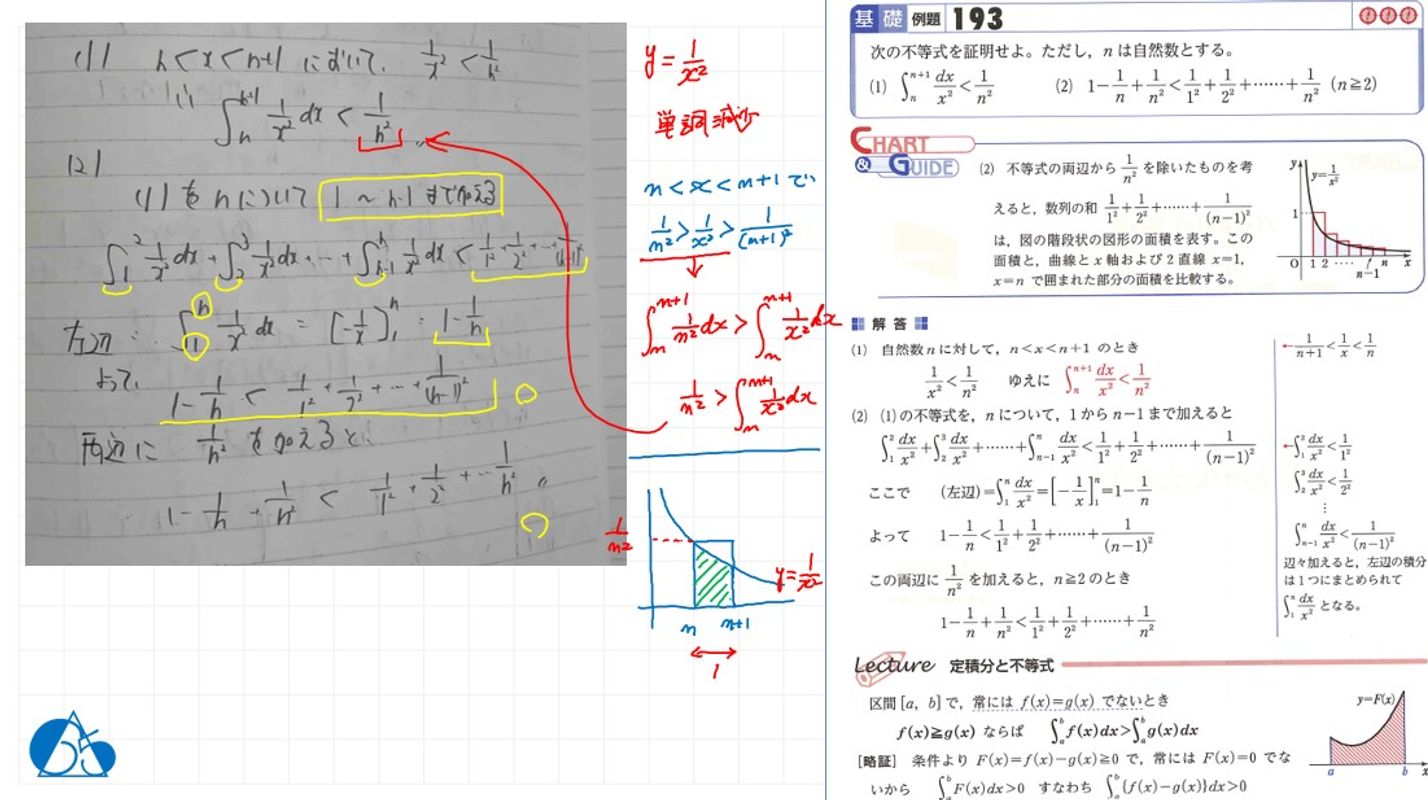 (1) n<x<n+1 において, 1/x² < 1/n²
∴ ∫_n^{n+1} 1/x² dx < 1/n² 〃
(2)
(1)をnについて 1 ~ n-1 まで加える
∫_1^2 1/x² dx + ∫_2^3 1/x² dx + … + ∫_{n-1}^n 1/x² dx < 1/1² + 1/2² + … + 1/(n-1)²
左辺: ∫_1^n 1/x² dx = [-1/x]_1^n = 1-1/n
よって,
1-1/n < 1/1² + 1/2² + … + 1/(n-1)²
両辺に 1/n² を加えると,
1-1/n + 1/n² < 1/1² + 1/2² + … 1/n² 〃
y=1/x²
単調減少
n<x<n+1で
1/n² > 1/x² > 1/(n+1)²
∫_n^{n+1} 1/n² dx > ∫_n^{n+1} 1/x² dx
1/n² > ∫_n^{n+1} 1/x² dx
1/n²
y=1/x²
n n+1
1
基礎 例題 193
次の不等式を証明せよ。ただし，n は自然数とする。
(1) ∫_n^{n+1} dx/x² < 1/n² (2) 1-1/n+1/n² < 1/1²+1/2²+……+1/n² (n≧2)
CHART & GUIDE
(2) 不等式の両辺から 1/n² を除いたものを考
えると，数列の和 1/1²+1/2²+……+1/(n-1)²
は，図の階段状の図形の面積を表す。この
面積と，曲線と x 軸および 2 直線 x=1，
x=n で囲まれた部分の面積を比較する。
y y=1/x²
1
O 1 2 …… n x
n-1
解答
(1) 自然数 n に対して，n<x<n+1 のとき
1/x² < 1/n² ゆえに ∫_n^{n+1} dx/x² < 1/n²
←1/(n+1) < 1/x < 1/n
(2) (1)の不等式を，n について，1 から n-1 まで加えると
∫_1^2 dx/x² + ∫_2^3 dx/x² + …… + ∫_{n-1}^n dx/x² < 1/1²+1/2²+……+1/(n-1)²
ここで (左辺)=∫_1^n dx/x²=[-1/x]_1^n=1-1/n
よって 1-1/n < 1/1²+1/2²+……+1/(n-1)²
この両辺に 1/n² を加えると，n≧2 のとき
1-1/n+1/n² < 1/1²+1/2²+……+1/n²
←∫_1^2 dx/x² < 1/1²
∫_2^3 dx/x² < 1/2²
⋮
∫_{n-1}^n dx/x² < 1/(n-1)²
辺々加えると，左辺の積分
は 1 つにまとめられて
∫_1^n dx/x² となる。
Lecture 定積分と不等式
区間 [a, b] で，常には f(x)=g(x) でないとき
f(x)≧g(x) ならば ∫_a^b f(x)dx>∫_a^b g(x)dx
[略証] 条件より F(x)=f(x)-g(x)≧0 で，常には F(x)=0 でな
いから ∫_a^b F(x)dx>0 すなわち ∫_a^b {f(x)-g(x)}dx>0
y=F(x)
a b x